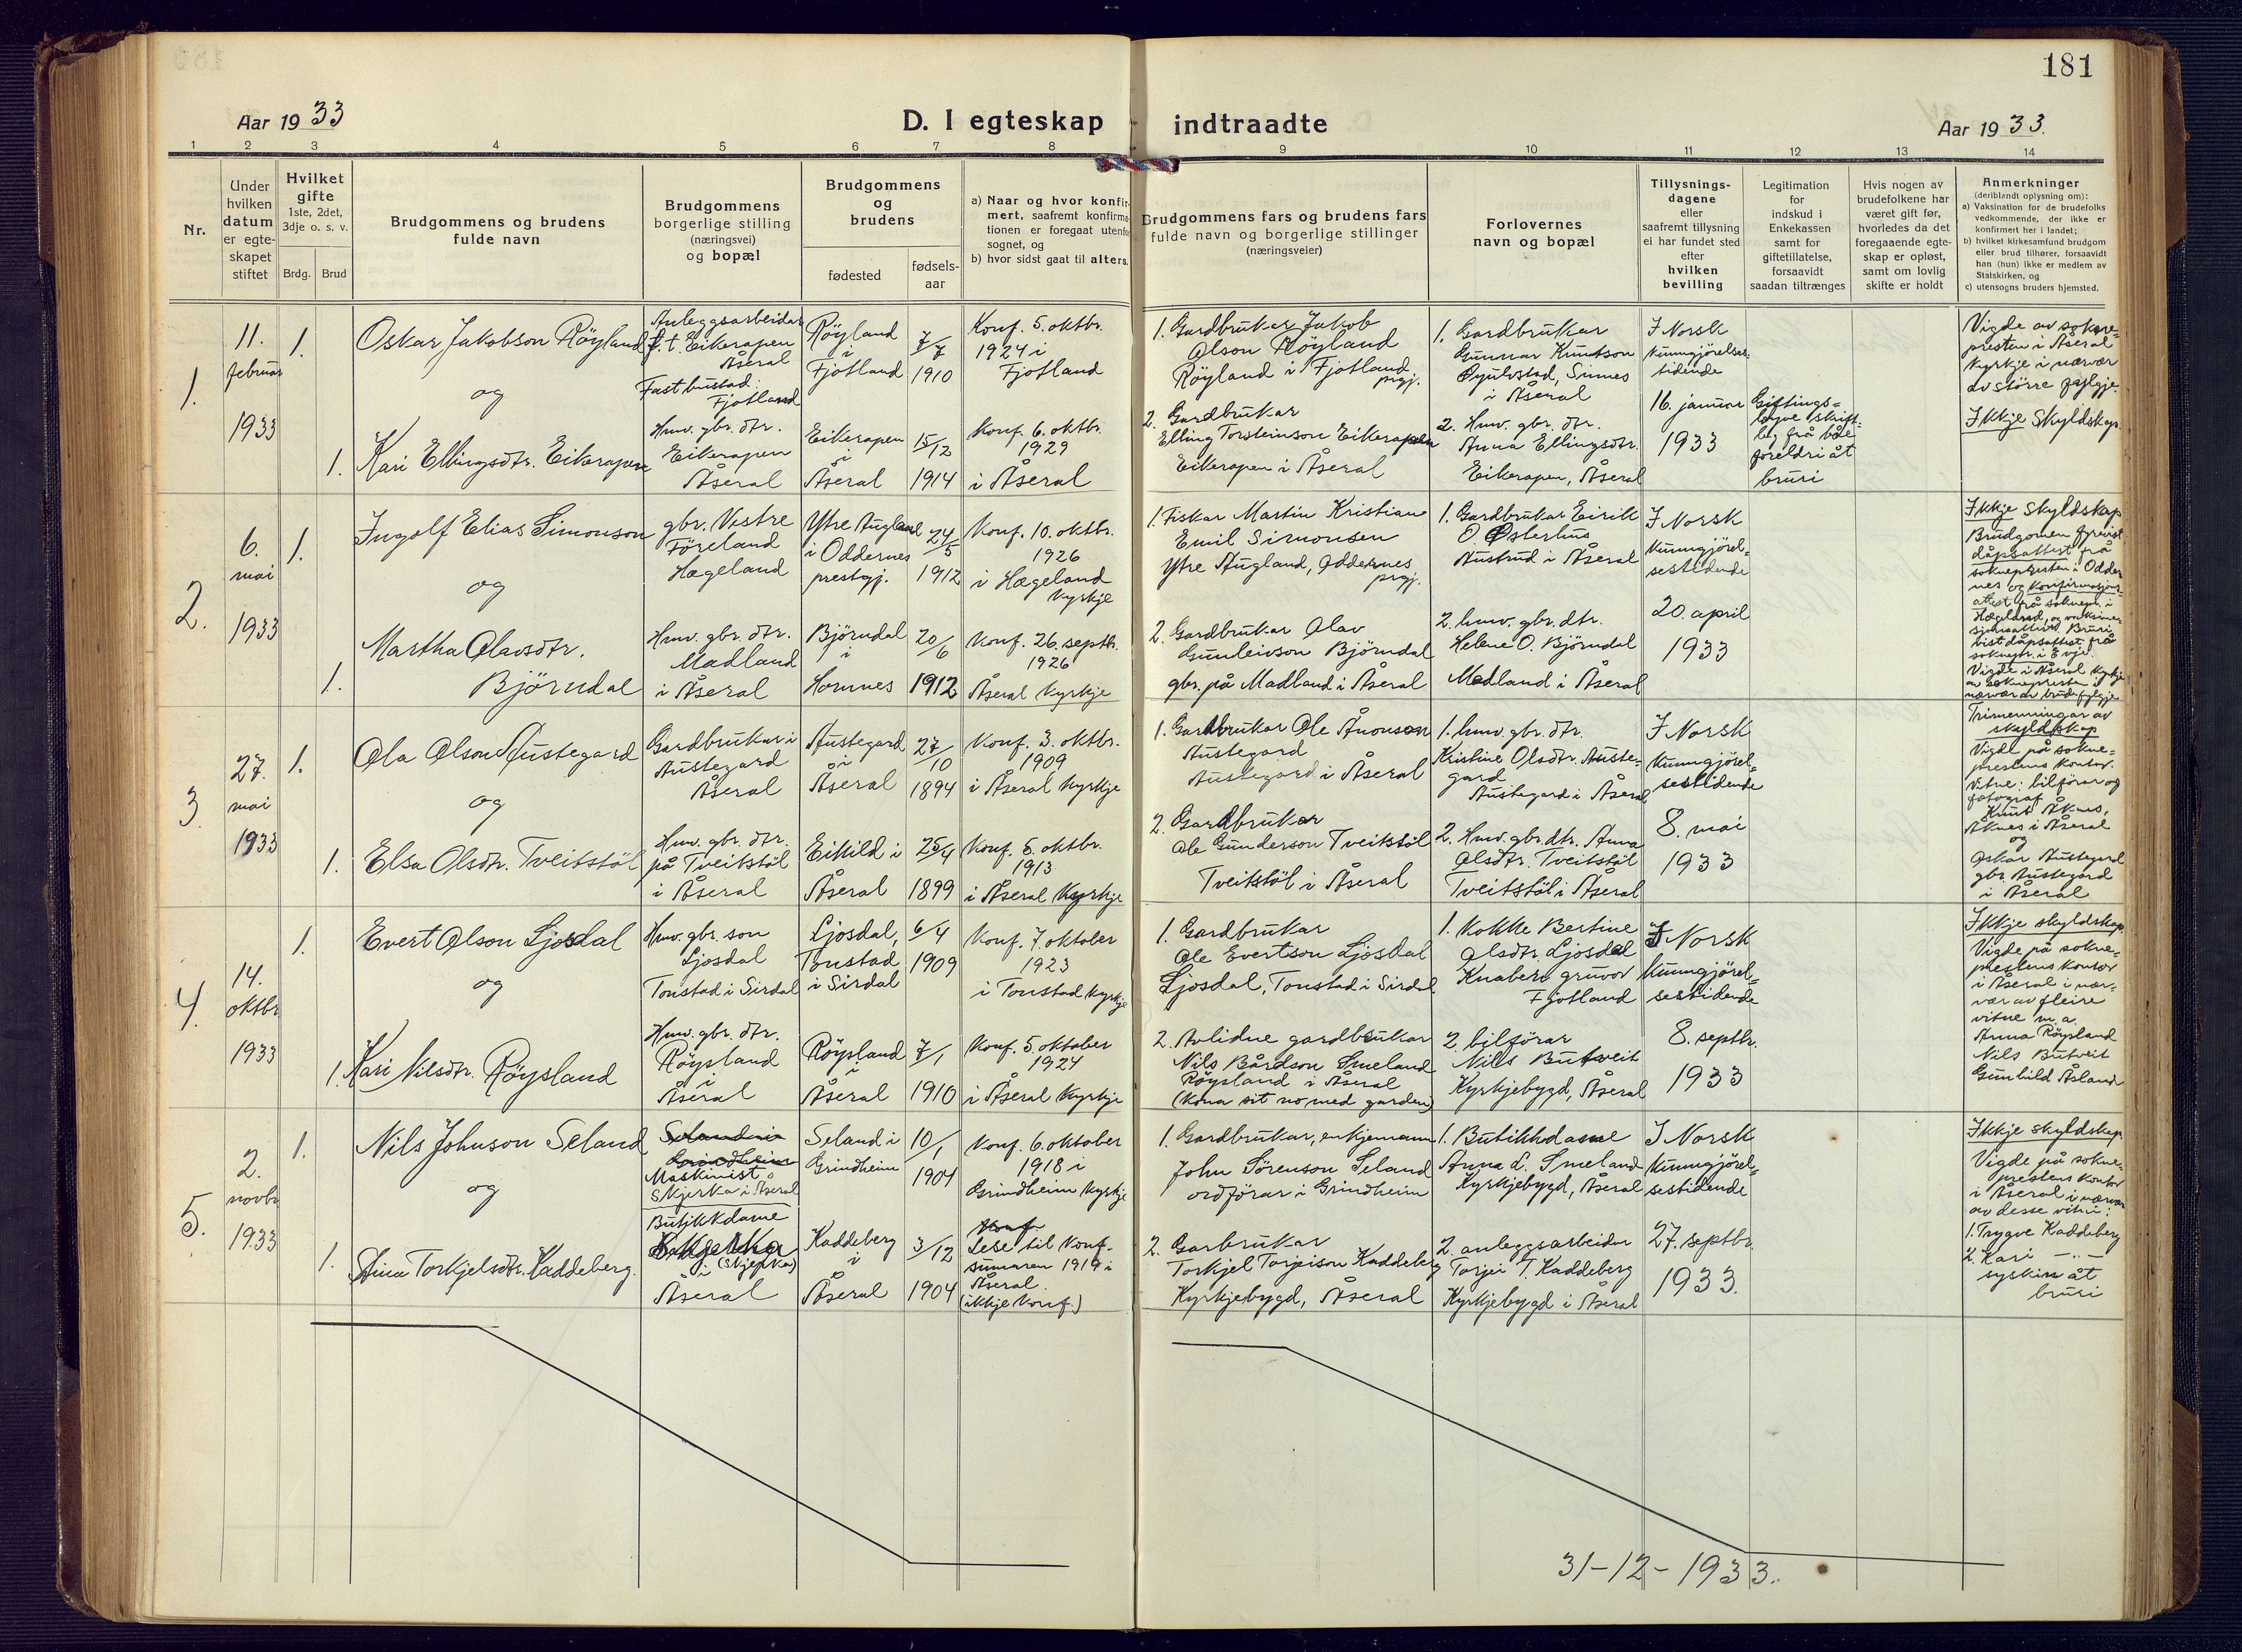 181
Aar 1933
D. I egteskap indtraadte
Aar 1933.
1 2 3 4 5 6 7 8 9 10 11 12 13 14
Nr.
Under
hvilken
datum
er egte-
skapet
stiftet
Hvilket
gifte
1ste, 2det,
3dje o. s. v.
Brdg. Brud
Brudgommens og brudens
fulde navn
Brudgommens
borgerlige stilling
(næringsvei)
og bopæl
Brudgommens
og
brudens
fødested
fødsels-
aar
a) Naar og hvor konfir-
mert, saafremt konfirma-
tionen er foregaat utenfor
sognet, og
b) hvor sidst gaat til alters.
Brudgommens fars og brudens fars
fulde navn og borgerlige stillinger
(næringsveier)
Forlovernes
navn og bopæl
Tillysnings-
dagene
eller
saafremt tillysning
ei har fundet sted
efter
hvilken
bevilling
Legitimation
for
indskud i
Enkekassen
samt for
giftetillatelse,
forsaavidt
saadan tiltrænges
Hvis nogen av
brudefolkene har
været gift før,
hvorledes da det
foregaaende egte-
skap er opløst,
samt om lovlig
skifte er holdt
Anmerkninger
(deriblandt oplysning om):
a) Vaksination for de brudefolks
vedkommende, der ikke er
konfirmert her i landet;
b) hvilket kirkesamfund brudgom
eller brud tilhører, forsaavidt
han (hun) ikke er medlem av
Statskirken, og
c) utensogns bruders hjemsted.
1.
11.
februar
1933
1.
Oskar Jakobson Röyland
og
1.
Kari Ellingsdtr. Eikerapen
Anleggsarbeidar
p.t. Eikerapen
Åseral
Fast bustad:
Fjotland
Hmv. gbr. dtr.
Eikerapen
Åseral
Röyland
i
Fjotland
7/7
1910
Eikerapen
i
Åseral
15/12
1914
Konf. 5. oktbr.
1924 i
Fjotland
Konf. 6. oktbr.
1929
i Åseral
1. Gardbrukar Jakob
Olson Röyland
Röyland i Fjotland
prgj.
2. Gardbrukar
Elling Torsteinson Eikerapen
Eikerapen i Åseral
1. Gardbrukar
Gunnar Knutson
Sinnes
i Åseral
2. Hmv. gbr. dtr.
Anna Ellingsdtr.
Eikerapen, Åseral
I Norsk
Kunngjörelses-
tidende
16. januar
1933
Giftings=
löyve skrift-
leg frå både
foreldri åt
bruri
Vigde av sokne-
presten i Åseral
Kyrkje i nærvær
av större fylgje.
Ikkje Skyldskap.
2.
6.
mai
1933
1.
Ingolf Elias Simonson
og
1.
Martha Olavsdtr.
Björndal
gbr. Vestre
Föreland
Hægeland
Hmv. gbr. dtr.
Madland
i Åseral
Ytre Augland
i Oddernes
prestgj.
24/5
1912
Björndal
i
Hornnes
20/6
1912
Konf. 10. oktbr.
1926
i Hægeland
Kyrkje
Konf. 26. septbr.
1926
Åseral Kyrkje
1. Fiskar Martin Kristiane
Emil Simonsen
Ytre Augland, Oddernes
prgj.
2. Gardbrukar Olav
Gunleivson Björndal
gbr. på Madland i Åseral
1. Gardbrukar Eirik
O. Østerhus
Austrud i Åseral
2. hmv. gbr. dtr.
Helene O. Björndal
Madland i Åseral
I Norsk
Kunngjörel=
sestidende
20 april
1933
Ikkje Skyldskap
Brudgomen
dåpsattest frå
soknepresten i Odder
nes og konfirmasjons-
attest frå soknepr. i
Hægeland, og vaksina-
sjonsattest. Bruri
vist dåpsattest frå
soknepr. i Evje.
Vigde i Åseral Kyrkje
av soknepresten i
nærvær av brudefylgje
3.
27.
mai
1933
1.
Ola Olson Austegard
og
1.
Elsa Olsdtr. Tveitstöl
Gardbrukar i
Austegard
Åseral
Hmv. gbr. dtr.
på Tveitstöl
i Åseral
Austegard
i
Åseral
27/10
1894
Eikild i
Åseral
25/4
1899
Konf. 3. oktbr.
1909
i Åseral Kyrkje
Konf. 5. oktbr.
1913
i Åseral Kyrkje
1. Gardbrukar Ole Ånonson
Austegard
Austegard i Åseral
2. Gardbrukar
Ole Gunderson Tveitstöl
Tveitstöl i Åseral
1. hmv. gbr. dtr.
Kristine Olsdtr. Auste-
gard
Austegard i Åseral
2. Hmv. gbr. dtr. Anna
Olsdtr. Tveitstöl
Tveitstöl i Åseral
I Norsk
Kunngjörel=
sestidende
8. mai
1933
Trimenningar av
skyldskap
Vigde på sokne=
prestens kontor.
Vitne: bilförar og
fotograf
Knut Åknes,
Åknes i Åseral
og
Oskar Austegard
gbr. Austegard
i Åseral
4.
14.
oktbr
1933
1.
Evert Olson Ljosdal
og
1.
Kari Nilsdtr. Röysland
Hmv. gbr. son
Ljosdal
Tonstad i Sirdal
Hmv. gbr. dtr.
Röysland
i
Åseral
Ljosdal,
Tonstad
i Sirdal
6/4
1909
Röysland
i
Åseral
7/1
1910
Konf. 7. oktober
1923
i Tonstad Kyrkje
Konf. 5. oktober
1924
i Åseral Kyrkje
1. Gardbrukar
Ole Evertson Ljosdal
Ljosdal, Tonstad i Sirdal
2. Avlidne gardbrukar
Nils Bårdson Smeland
Röysland i Åseral
(Kona sit no med garden)
1. Kokke Bertine
Olsdtr. Ljosdal
Knabero gruvor
Fjotland
2. bilförar
Nils Butveit
Kyrkjebygd, Åseral
I Norsk
Kunngjörel=
sestidende
8. septbr.
1933
Ikkje skyldskap.
Vigde på sokne=
prestens kontor
i Åseral i nær-
vær av fleire
vitne m.a.
Anna Röysland
Nils Butveit
Gunhild Åsland
5.
2.
novbr
1933
1.
Nils Johnson Seland
og
1.
Stina Torkjelsdtr. Kaddeberg.
Seland i
Grindheim
Maskinist
Skjerka i Åseral
Butikkdame
i (Skjerka)
Åseral
Seland i
Grindheim
10/1
1904
Kaddeberg
i
Åseral
3/12
1904
Konf. 6. oktober
1918 i
Grindheim Kyrkje
Konf.
Lese til Konf.
sumaren 1919 i
Åseral
(ikkje Konf.)
1. Gardbrukar, enkjemann
John Sörenson Seland
ordförar i Grindheim
2. Garbrukar
Torkjel Torjeison Kaddeberg
Kyrkjebygd, Åseral
1. Butikkdame
Anna L. Smeland
Kyrkjebygd, Åseral
2. anleggsarbeidar
Torjei T. Kaddeberg
Kyrkjebygd i Åseral
I Norsk
Kunngjörel=
sestidende
27. septbr.
1933.
Ikkje skyldskap.
Vigde på sokne=
prestens kontor
i Åseral i nærvær
av desse vitni:
1. Trygve Kaddeberg
2. Kari —„—
syskin åt
bruri
31-12-1933.